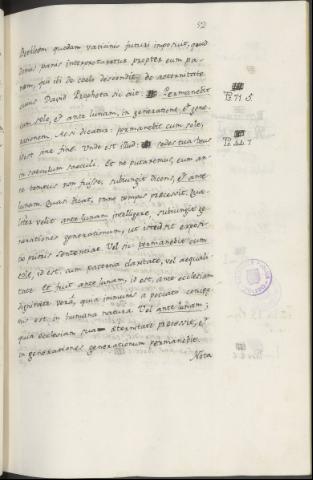 52
Bethleem quodam vaticinio futuri imposuit, quod
domus panis interpretaretur propter eum pa-
nem, qui ibi de coelo descendit, de aeternitate
cuius David Propheta sic ait: Permanebit
cum sole, et ante lunam, in generatione et gene-
rationem. Ac si dicatur: permanebit cum sole,
idest sine fine. Unde est illud: sedes tua Deus
in saeculum saeculi. Et ne putaremus, eum an-
te tempus non fuisse, subiungit dicens, et ante
lunam. Quasi dicat, omne tempus precessit. Qua-
liter velit ante lunam intelligere, subiungit ge-
nerationes generationum, ut istud sit exposi-
tio prioris sententiae. Vel sic permanebit cum
sole, id est, cum paterna claritate, vel aequali-
tate Et fuit ante lunam, id est, ante ecclesiam
dignitate, quia immunis a peccato concep-
tus est in humana natura. Vel ante lunam;
quia ecclesiam sua aeternitate precessit, et
in generationes generationum permanebit.
Nota
Ps. 71. 5.
Ps. 44. 7